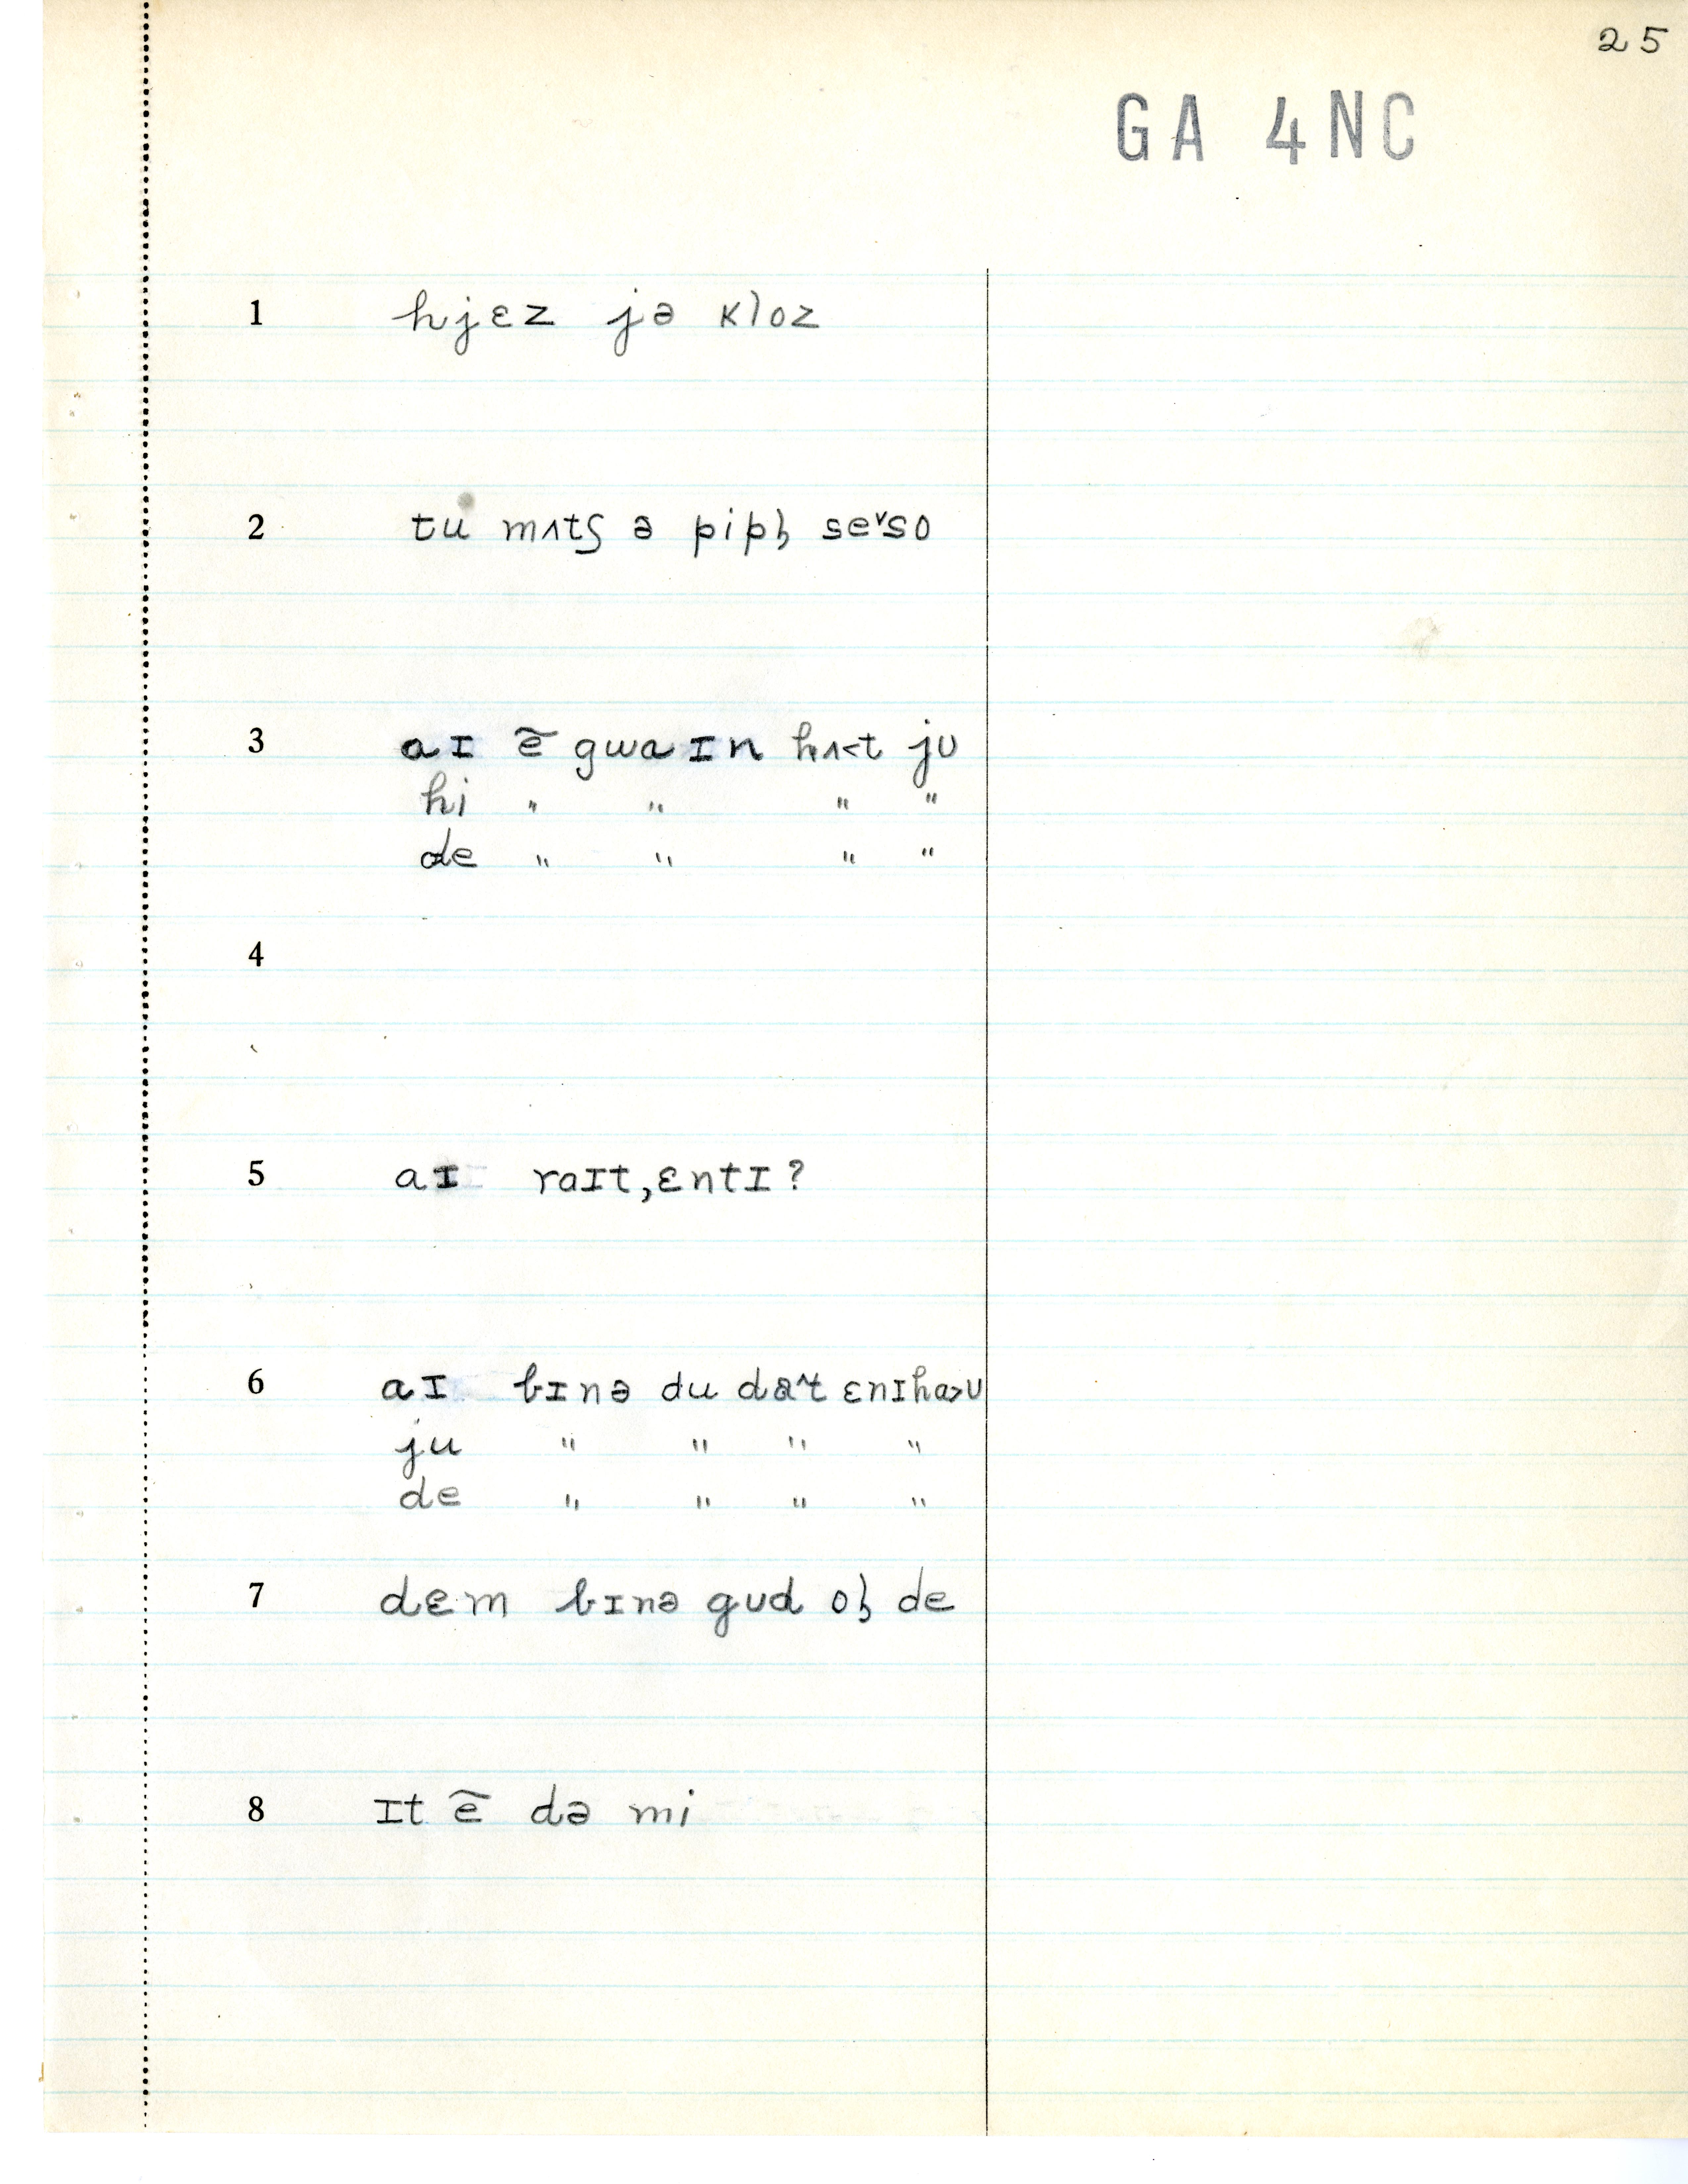 25
GA 4NC
1 hjɛz jə kloz
2 tu mʌtʃ ə pipl̩ se˅so
3 aɪ ẽ gwaɪn hʌ˂t jʊ
hi " " " "
de " " " "
4
5 aɪ raɪt, ɛntɪ?
6 aɪ bɪnə du da^t ɛnɪha˃ʊ
ju " " " "
de " " " "
7 dɛm bɪnə gʊd ol̩ de
8 ɪt ẽ də mi